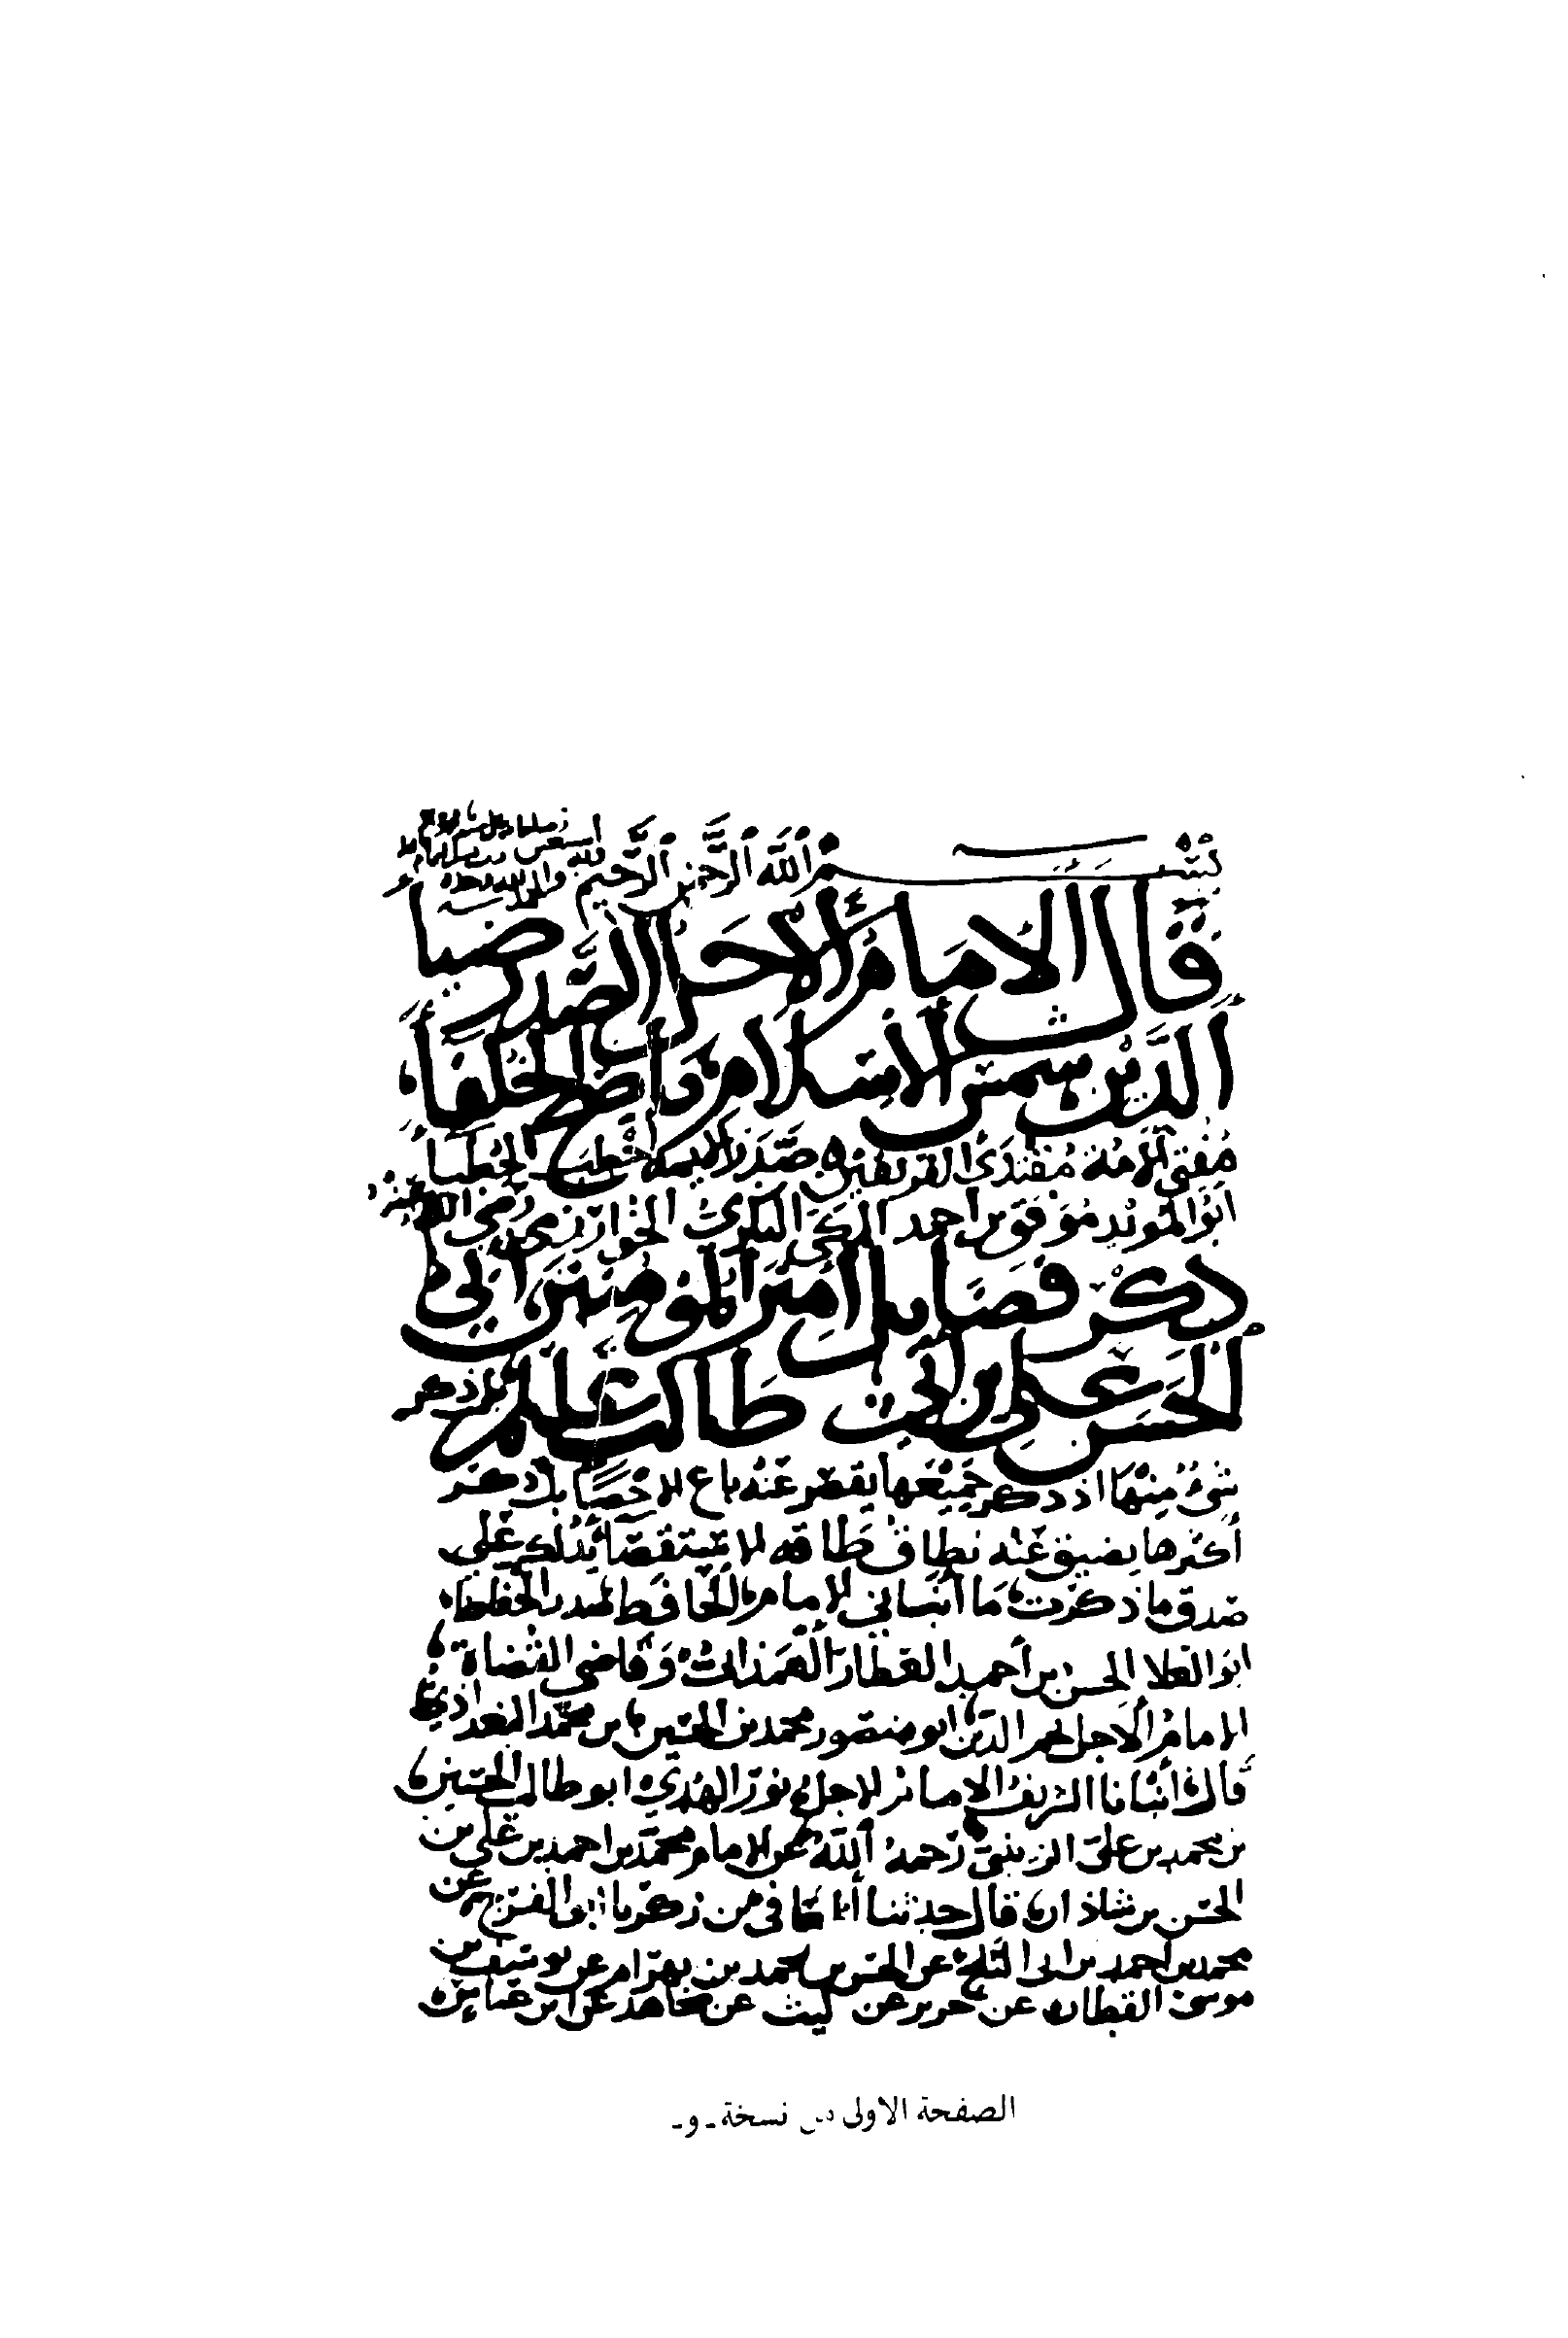 بسم الله الرحمن الرحيم
قال الامام الاجل الصدر ضيا
الدين شمس الاسلام ناصح الخلفاء
مفتي الامة مقتدى الفريقين صدر الايمة اخطب الخطباء
ابو المؤيد موفق بن احمد المكي البكري الخوارزمي رضي الله عنه
ذكر فضايل امير المؤمنين ابي
الحسن علي بن ابي طالب عليه السلم بل ذكر
شيء منها اذ ذكر جميعها يقصر عنه باع الاحصا بل ذكر
أكثرها يضيق عنه نطاق طاقه الاستقصاء يدلك على
صدق ما ذكرت ما أنبأني الامام الحافظ صدر الحفاظ
ابو العلا الحسن بن أحمد العطار الهمذاني وقاضي القضاة
الامام الاجل نجم الدين ابو منصور محمد بن الحسين بن محمد البغدادي
قالا انبأنا الشريف الامام الاجل نور الهدى ابو طالب الحسين
بن محمد بن علي الزينبي رحمه الله عن الامام محمد بن احمد بن علي بن
الحسن بن شاذان قال حدثنا المعافى بن زكريا ابو الفرج عن
محمد بن احمد بن ابي الثلج عن الحسن بن محمد بن بهرام عن يوسف بن
موسى القطان عن جرير عن ليث عن مجاهد عن ابن عباس
الصفحة الاولى من نسخة -و-